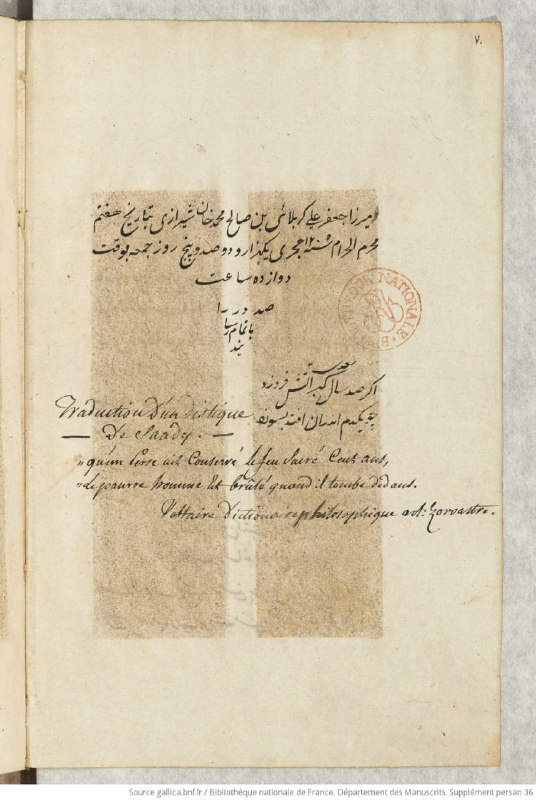 ۷۰
میرزا جعفر علی کربلائی بن صالح محمد خان شیرازی بتاریخ هفتم
محرم الحرام سنه ۱۲ هجری یکهزار و دو صد و پنج روز جمعه بوقت
دوازده ساعت
صد در را
باتمام رسا
نید
سعدی
اگر صد سال گبر آتش فروزد
چه یکدم اندران افتد بسوزد
Traduction d'un distique
— De Saady. —
"qu'un Perse ait Conservé le feu Sacré Cent ans,
"le pauvre homme Est brûlé quand il tombe dedans.
Voltaire Dictionaire philosophique art: Zoroastre.
BIBLIOTHÈQUE NATIONALE
Source gallica.bnf.fr / Bibliothèque nationale de France. Département des Manuscrits. Supplément persan 36